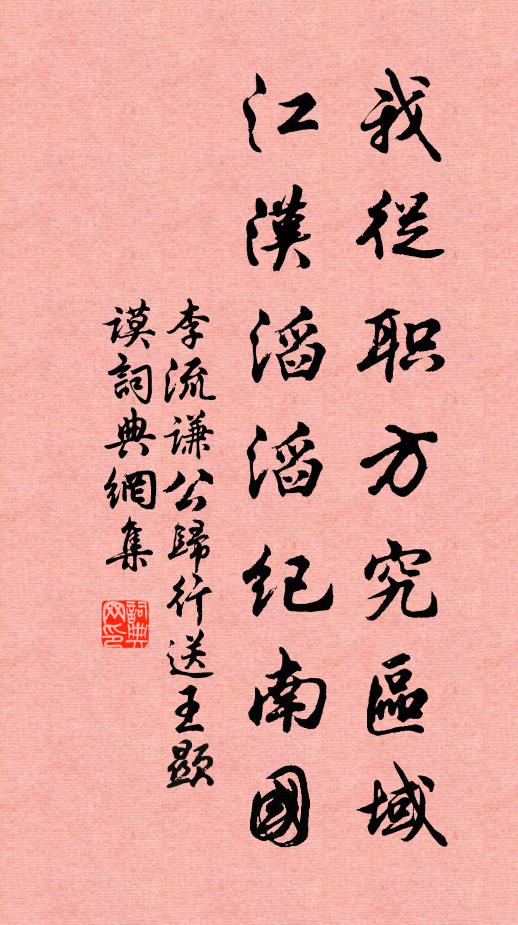 我從职方究區域
江漢滔滔纪南國
李流谦公歸行送王顯
谟詞典網集
詞典网印